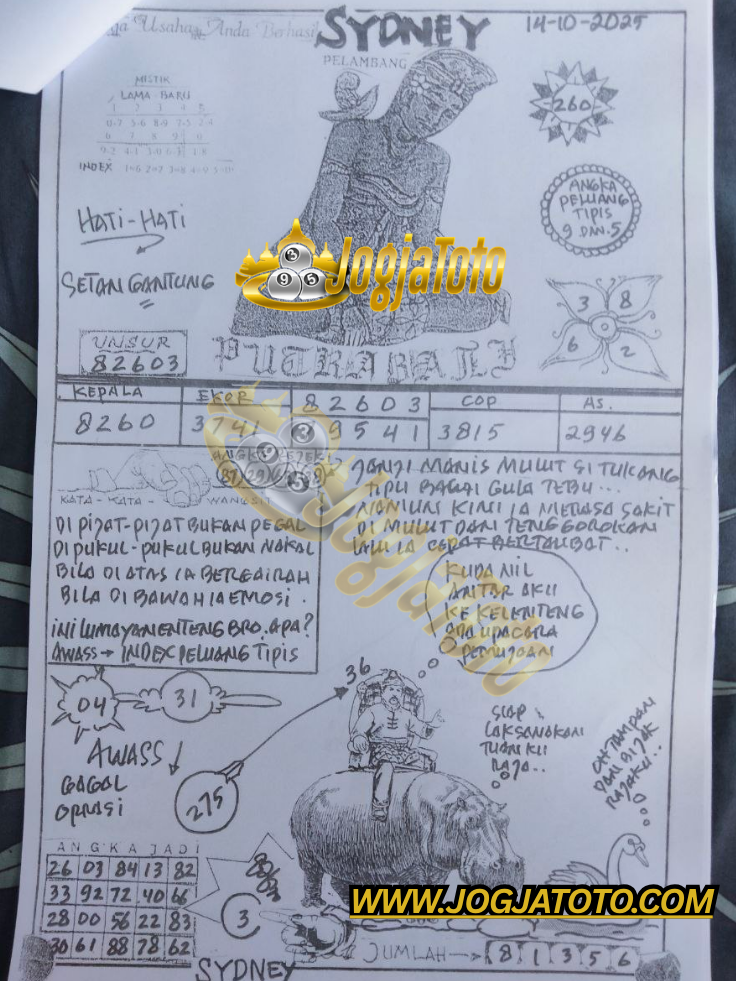 Usaha Anda Berhasil
SYDNEY
14-10-2025
PELAMBANG
MISTIK
LAMA - BARU
1 2 3 4 5
6 7 8 9 0
INDEX 1=6 2=7 3=8 4=9 5=0
260
ANGKA
PELUANG
TIPIS
9 DAN.5
HATI-HATI
SETAN GANTUNG
JogjaToto
3 8
6 2
UNSUR
82603
PUTRA BALI
KEPALA EKOR 82603 COP AS.
8260 3741 39541 3815 2946
KATA - KATA - WANGSIT
JANJI MANIS MULUT SI TUKANG
TIPU BAGAI GULA TEBU...
NAMUN KINI IA MERASA SAKIT
DI MULUT DAN TENGGOROKAN
LALU IA CEPAT BERTAUBAT..
DI PIJAT-PIJAT BUKAN PEGAL
DI PUKUL-PUKUL BUKAN NAKAL
BILA DI ATAS IA BERGAIRAH
BILA DI BAWAH IA EMOSI.
INI LUMAYAN ENTENG BRO. APA?
AWASS → INDEX PELUANG TIPIS
KUDA NIL
ANTAR AKU
KE KELENTENG
ADA UPACARA
PEMUJAAN
JogjaToto
36
04
31
SIAP
LAKSANAKAN
TUANKU
RAJA..
OH-TAMPAN
DAN BIJAK
RAJAKU..
AWASS
GAGAL
OPRASI
275
ANGKA JADI
26 03 84 13 82
33 92 72 40 66
28 00 56 22 83
30 61 88 78 62
3
WWW.JOGJATOTO.COM
JUMLAH → 8 1 3 5 6
SYDNEY